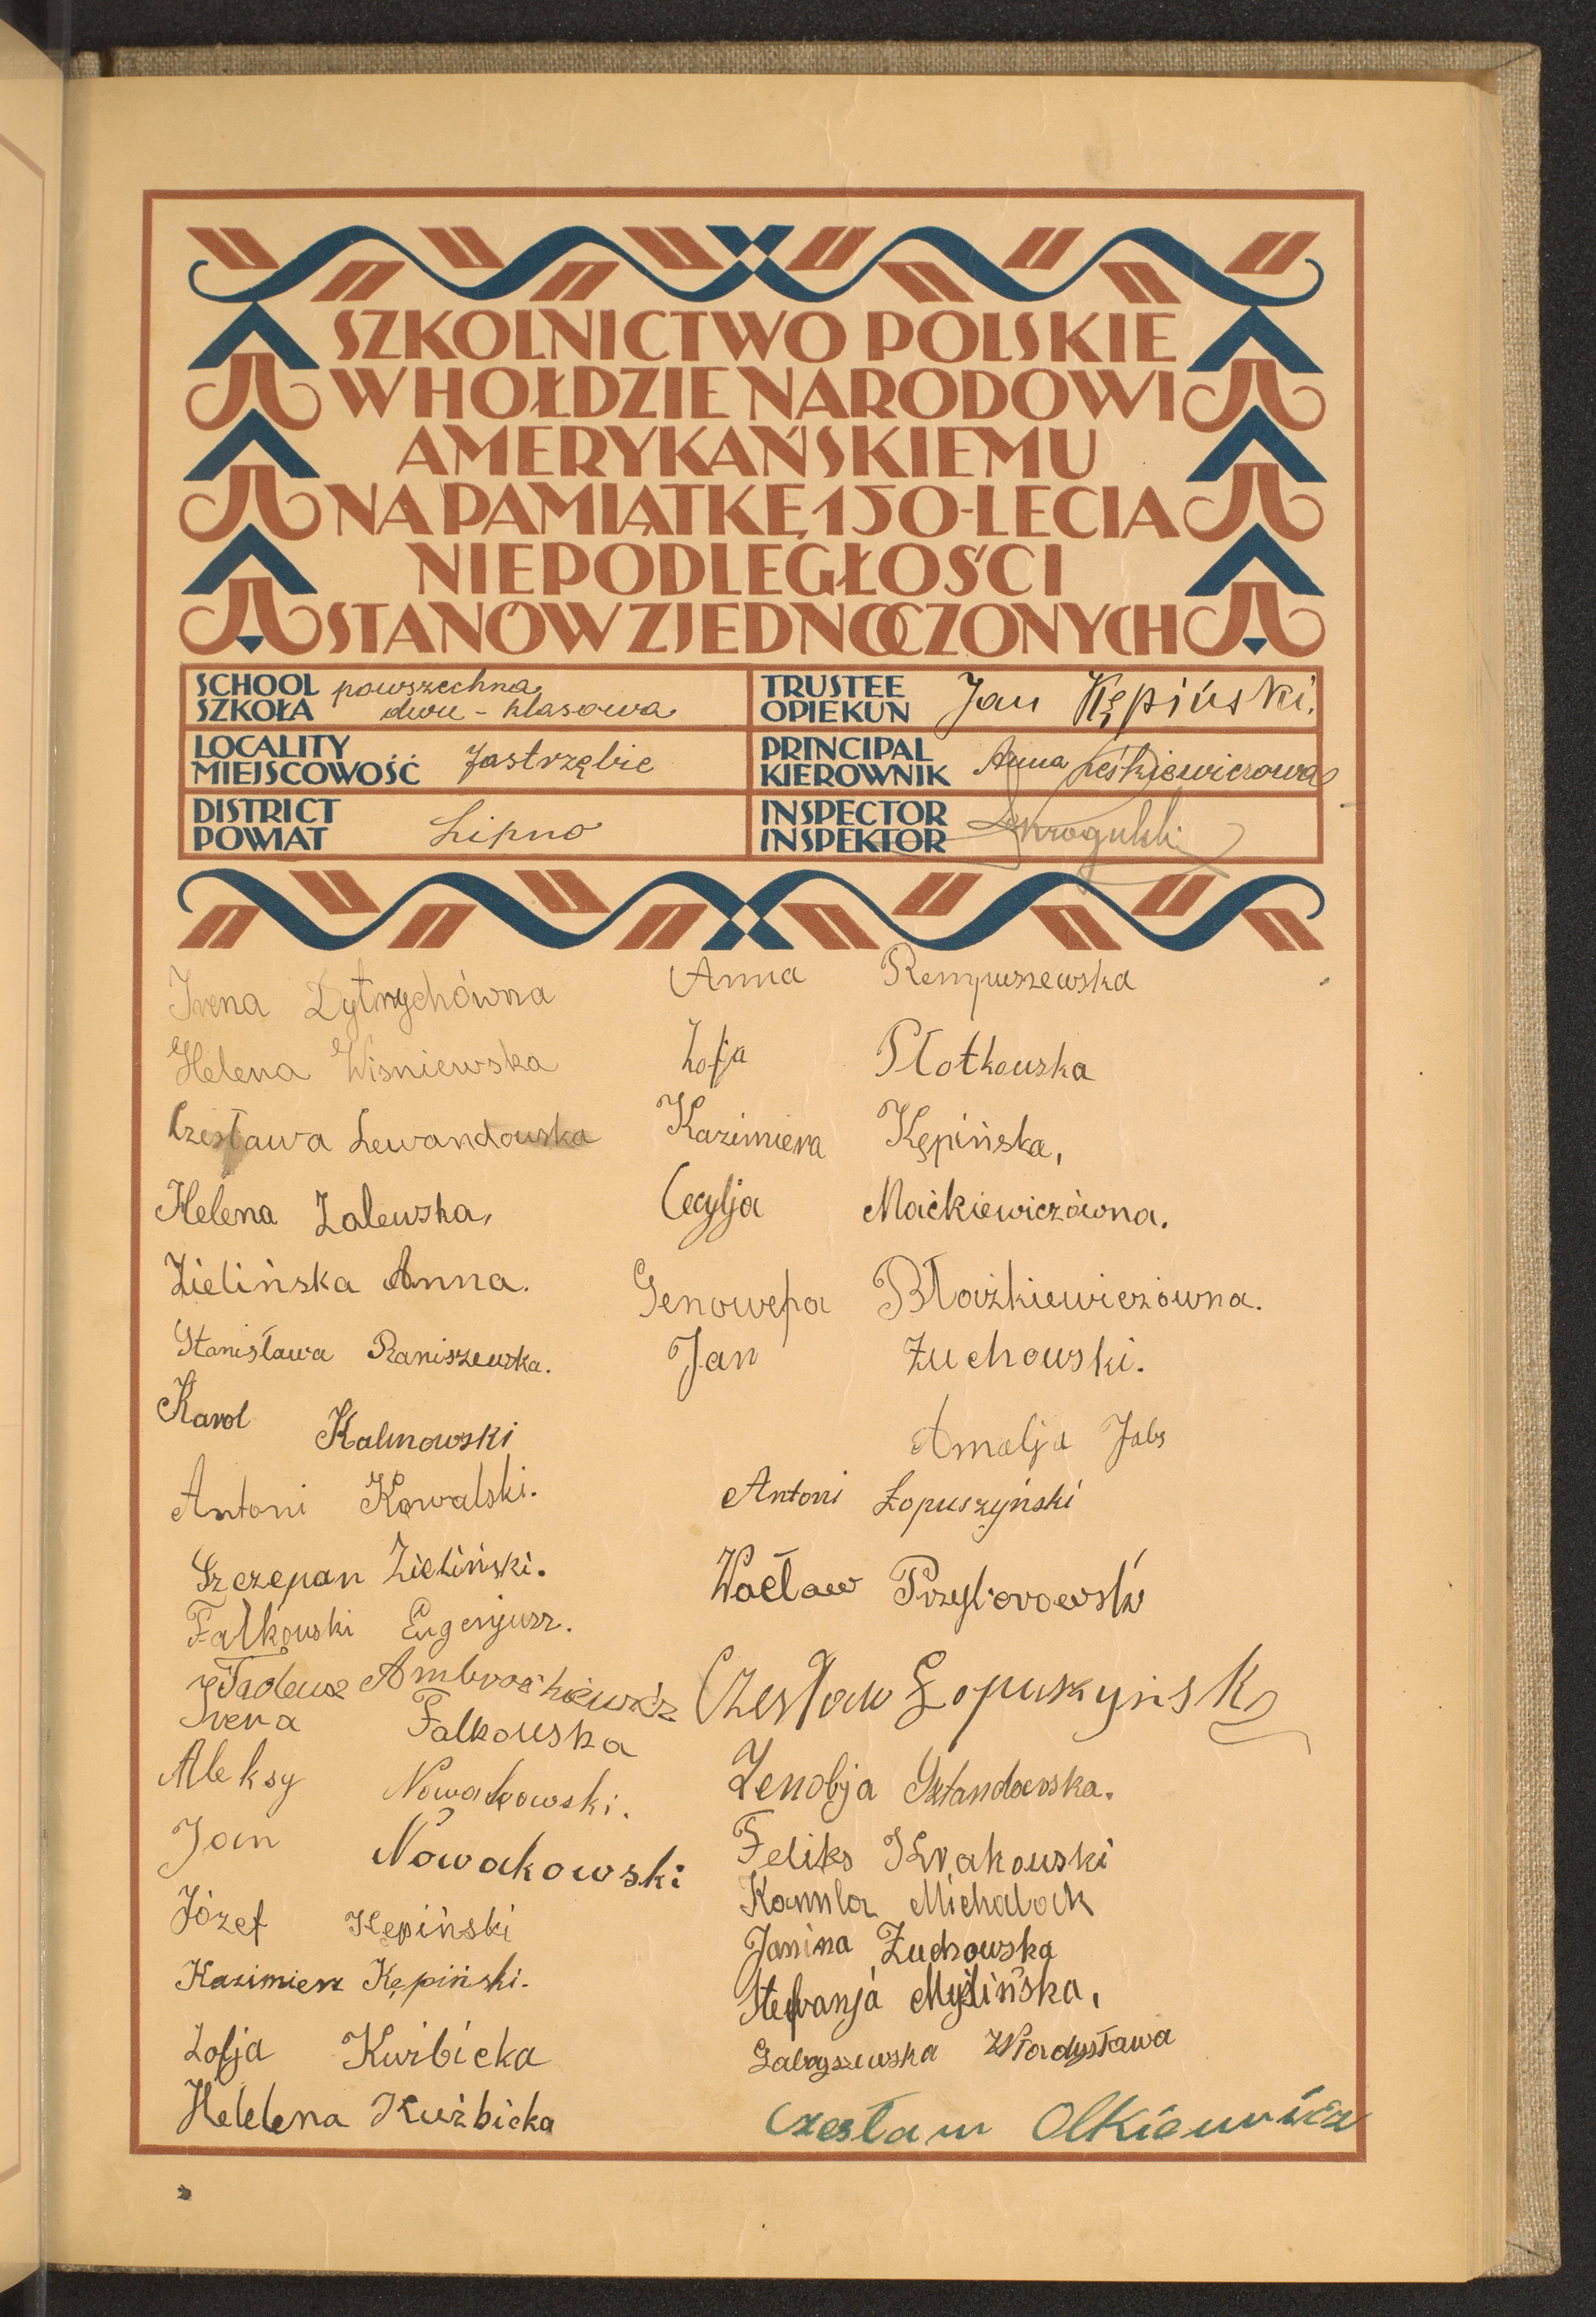 SZKOLNICTWO POLSKIE
W HOŁDZIE NARODOWI
AMERYKAŃSKIEMU
NA PAMIĄTKĘ 150-LECIA
NIEPODLEGŁOŚCI
STANÓW ZJEDNOCZONYCH
SCHOOL
SZKOŁA
powszechna
dwu-klasowa
TRUSTEE
OPIEKUN
Jan Kępiński.
LOCALITY
MIEJSCOWOŚĆ
Jastrzębie
PRINCIPAL
KIEROWNIK
Anna Leśkiewiczowa
DISTRICT
POWIAT
Lipno
INSPECTOR
INSPEKTOR
Irena Dytrychówna
Helena Wisniewska
Czesława Lewandowska
Helena Zalewska,
Zielińska Anna.
Stanisława Raniszewska.
Karol Kalinowski
Antoni Kowalski.
Szczepan Zieliński.
Falkowski Eugenjusz.
Tadeusz Ambroszkiewicz
Irena Falkowska
Aleksy Nowakowski.
Jan Nowakowski
Józef Kępiński
Kazimierz Kępiński.
Zofja Kuźbicka
Helelena Kuźbicka
Anna Rempuszewska
Zofja Płotkowska
Kazimiera Kępińska,
Cecylja Maćkiewiczówna.
Genowefa Błażkiewiczówna.
Jan Żuchowski.
Amalja Jabs
Antoni Łopuszyński
Wacław Przyborowski
Czesław Łopuszyński
Zenobja Sztandarska.
Feliks Krakowski
Kamila Michalack
Janina Żuchowska
Stefanja Myślińska,
Gabryszewska Władysława
Czesław Olkiewicz